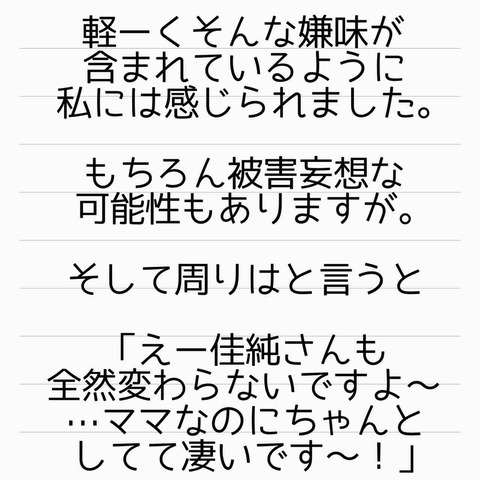 軽ーくそんな嫌味が
含まれているように
私には感じられました。
もちろん被害妄想な
可能性もありますが。
そして周りはと言うと
「えー佳純さんも
全然変わらないですよ〜
…ママなのにちゃんと
してて凄いです〜！」